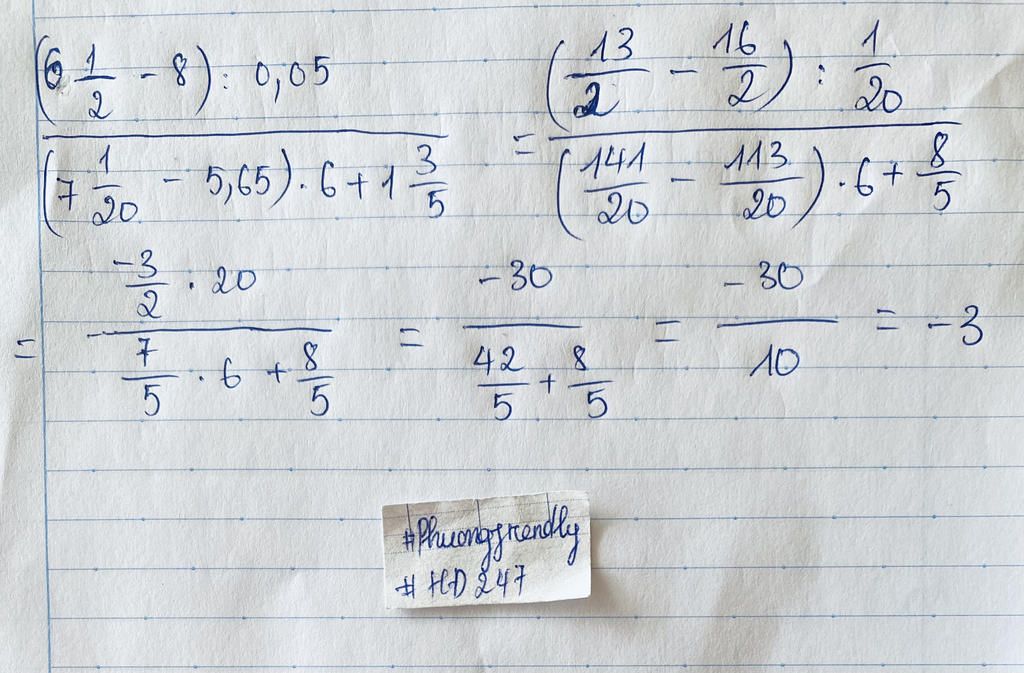 (6 1/2 - 8) : 0,05 / (7 1/20 - 5,65) . 6 + 1 3/5 = (13/2 - 16/2) : 1/20 / (141/20 - 113/20) . 6 + 8/5
= -3/2 . 20 / 7/5 . 6 + 8/5 = -30 / 42/5 + 8/5 = -30 / 10 = -3
#Phuongfriendly
#HD247